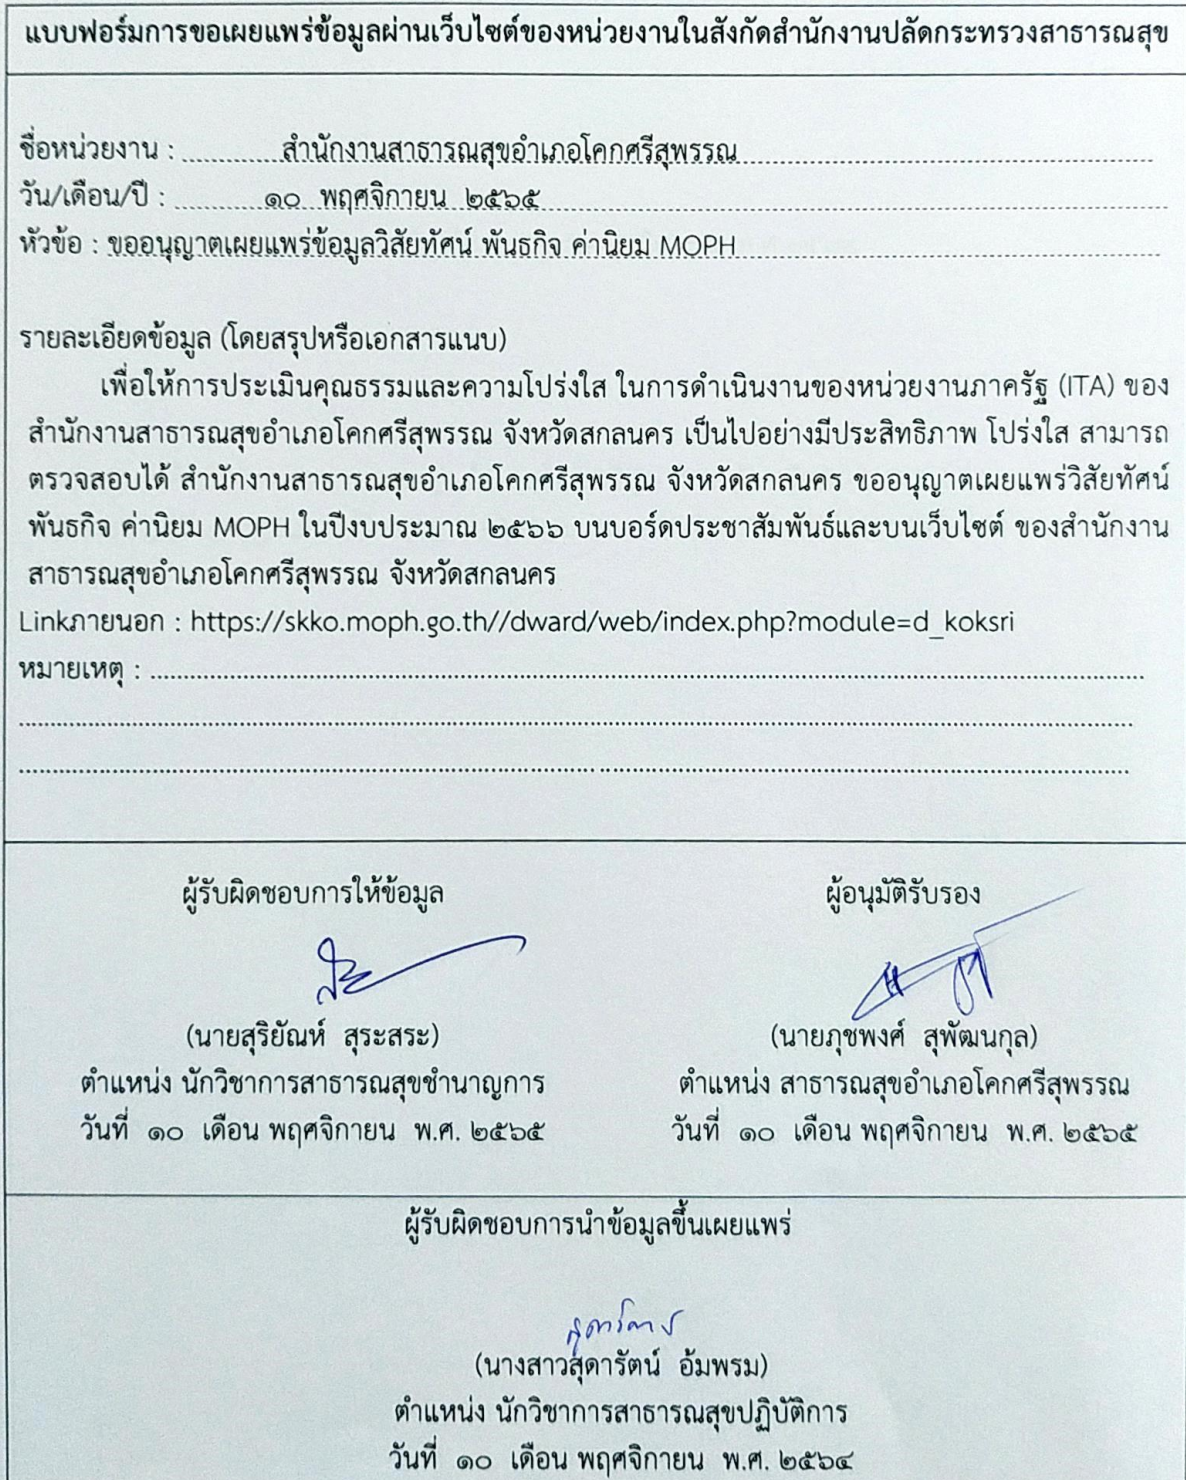 แบบฟอร์มการขอเผยแพร่ข้อมูลผ่านเว็บไซต์ของหน่วยงานในสังกัดสำนักงานปลัดกระทรวงสาธารณสุข
ชื่อหน่วยงาน : สำนักงานสาธารณสุขอำเภอโคกศรีสุพรรณ
วัน/เดือน/ปี : ๑๐ พฤศจิกายน ๒๕๖๕
หัวข้อ : ขออนุญาตเผยแพร่ข้อมูลวิสัยทัศน์ พันธกิจ ค่านิยม MOPH
รายละเอียดข้อมูล (โดยสรุปหรือเอกสารแนบ)
เพื่อให้การประเมินคุณธรรมและความโปร่งใส ในการดำเนินงานของหน่วยงานภาครัฐ (ITA) ของ
สำนักงานสาธารณสุขอำเภอโคกศรีสุพรรณ จังหวัดสกลนคร เป็นไปอย่างมีประสิทธิภาพ โปร่งใส สามารถ
ตรวจสอบได้ สำนักงานสาธารณสุขอำเภอโคกศรีสุพรรณ จังหวัดสกลนคร ขออนุญาตเผยแพร่วิสัยทัศน์
พันธกิจ ค่านิยม MOPH ในปีงบประมาณ ๒๕๖๖ บนบอร์ดประชาสัมพันธ์และบนเว็บไซต์ ของสำนักงาน
สาธารณสุขอำเภอโคกศรีสุพรรณ จังหวัดสกลนคร
Linkภายนอก : https://skko.moph.go.th//dward/web/index.php?module=d_koksri
หมายเหตุ :
ผู้รับผิดชอบการให้ข้อมูล
(นายสุริยัณห์ สุระสระ)
ตำแหน่ง นักวิชาการสาธารณสุขชำนาญการ
วันที่ ๑๐ เดือน พฤศจิกายน พ.ศ. ๒๕๖๕
ผู้อนุมัติรับรอง
(นายภุชพงศ์ สุพัฒนกุล)
ตำแหน่ง สาธารณสุขอำเภอโคกศรีสุพรรณ
วันที่ ๑๐ เดือน พฤศจิกายน พ.ศ. ๒๕๖๕
ผู้รับผิดชอบการนำข้อมูลขึ้นเผยแพร่
(นางสาวสุดารัตน์ อ้มพรม)
ตำแหน่ง นักวิชาการสาธารณสุขปฏิบัติการ
วันที่ ๑๐ เดือน พฤศจิกายน พ.ศ. ๒๕๖๔